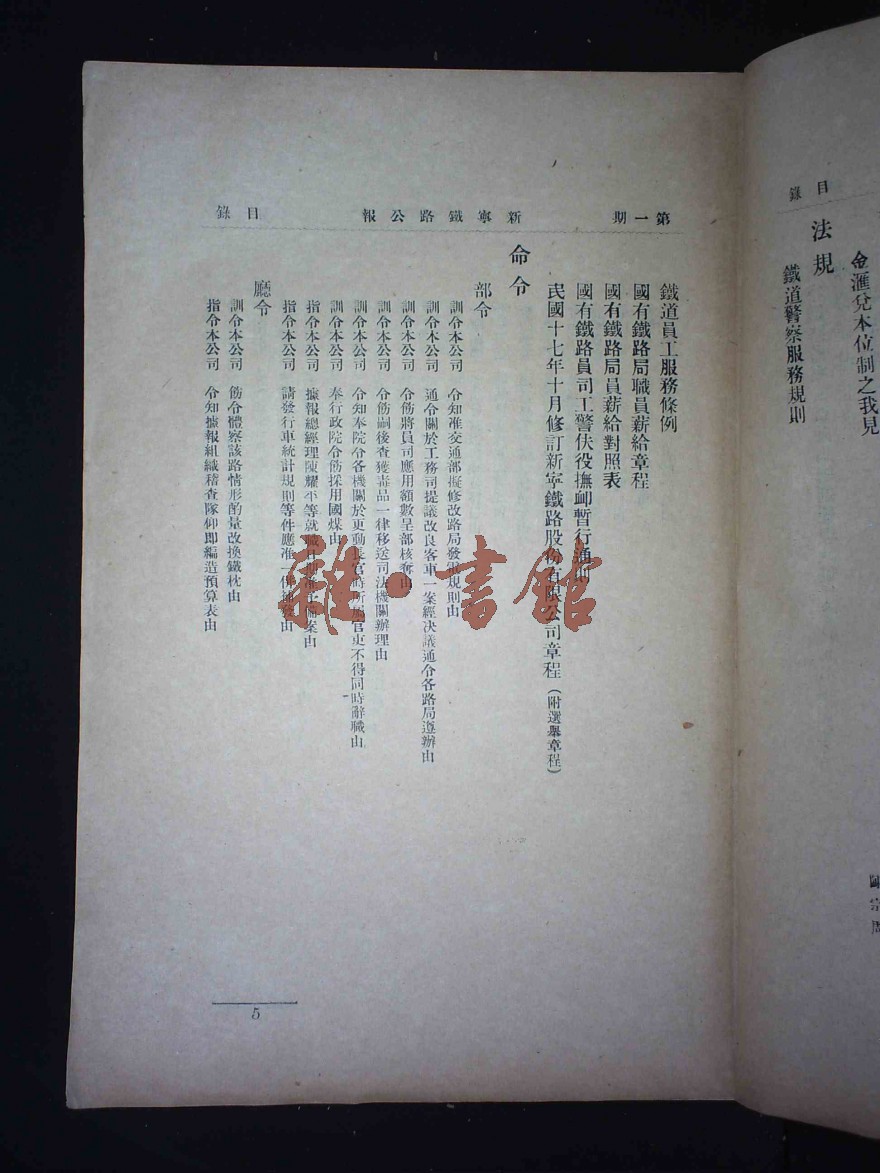 金滙兌本位制之我見
目錄
法規
鐵道警察服務規則
第一期 新寧鐵路公報 目錄
鐵道員工服務條例
國有鐵路局職員薪給章程
國有鐵路局員薪給對照表
國有鐵路員司工警伕役撫卹暫行通則
民國十七年十月修訂新寧鐵路股份有限公司章程(附選舉章程)
命令
部令
訓令本公司 令知准交通部擬修改路局發電規則由
訓令本公司 通令關於工務司提議改良客車一案經决議通令各路局遵辦由
訓令本公司 令飭將員司應用額數呈部核奪由
訓令本公司 令飭嗣後查獲毒品一律移送司法機關辦理由
訓令本公司 令知奉院令各機關於更動長官時所屬官吏不得同時辭職由
訓令本公司 奉行政院令飭採用國煤由
指令本公司 據報總經理陳耀平等就職日期准予備案由
指令本公司 請發行車統計規則等件應准一併補發由
廳令
訓令本公司 飭令體察該路情形酌量改換鐵枕由
指令本公司 令知據報組織稽查隊仰即編造預算表由
5
雜·書館